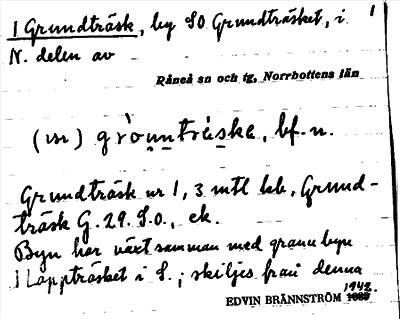 1 Grundträsk, by SO Grundträsket, i 1
N. delen av
Råneå sn och tg, Norrbottens län
(ɪn) gròu̯ntrḙske, bf. n.
Grundträsk nr 1, 3 mtl kb, Grund-
träsk G. 29. S.O., ek.
Byn har växt samman med grannbyn
1 Lappträsket i S.; skiljes från denna
1942.
EDVIN BRÄNNSTRÖM